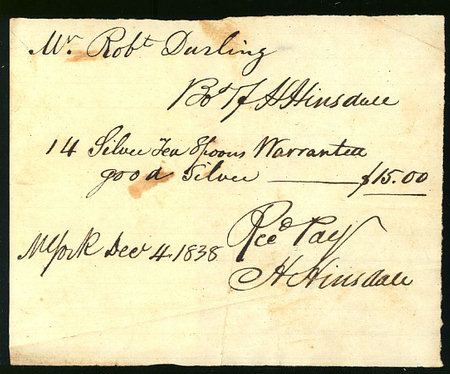 Mr. Robt Darling
Bot of H Hinsdale
14 Silver Tea Spoons Warranted
good Silver — $15.00
N York Decr 4 1838
Recd Pay
H Hinsdale